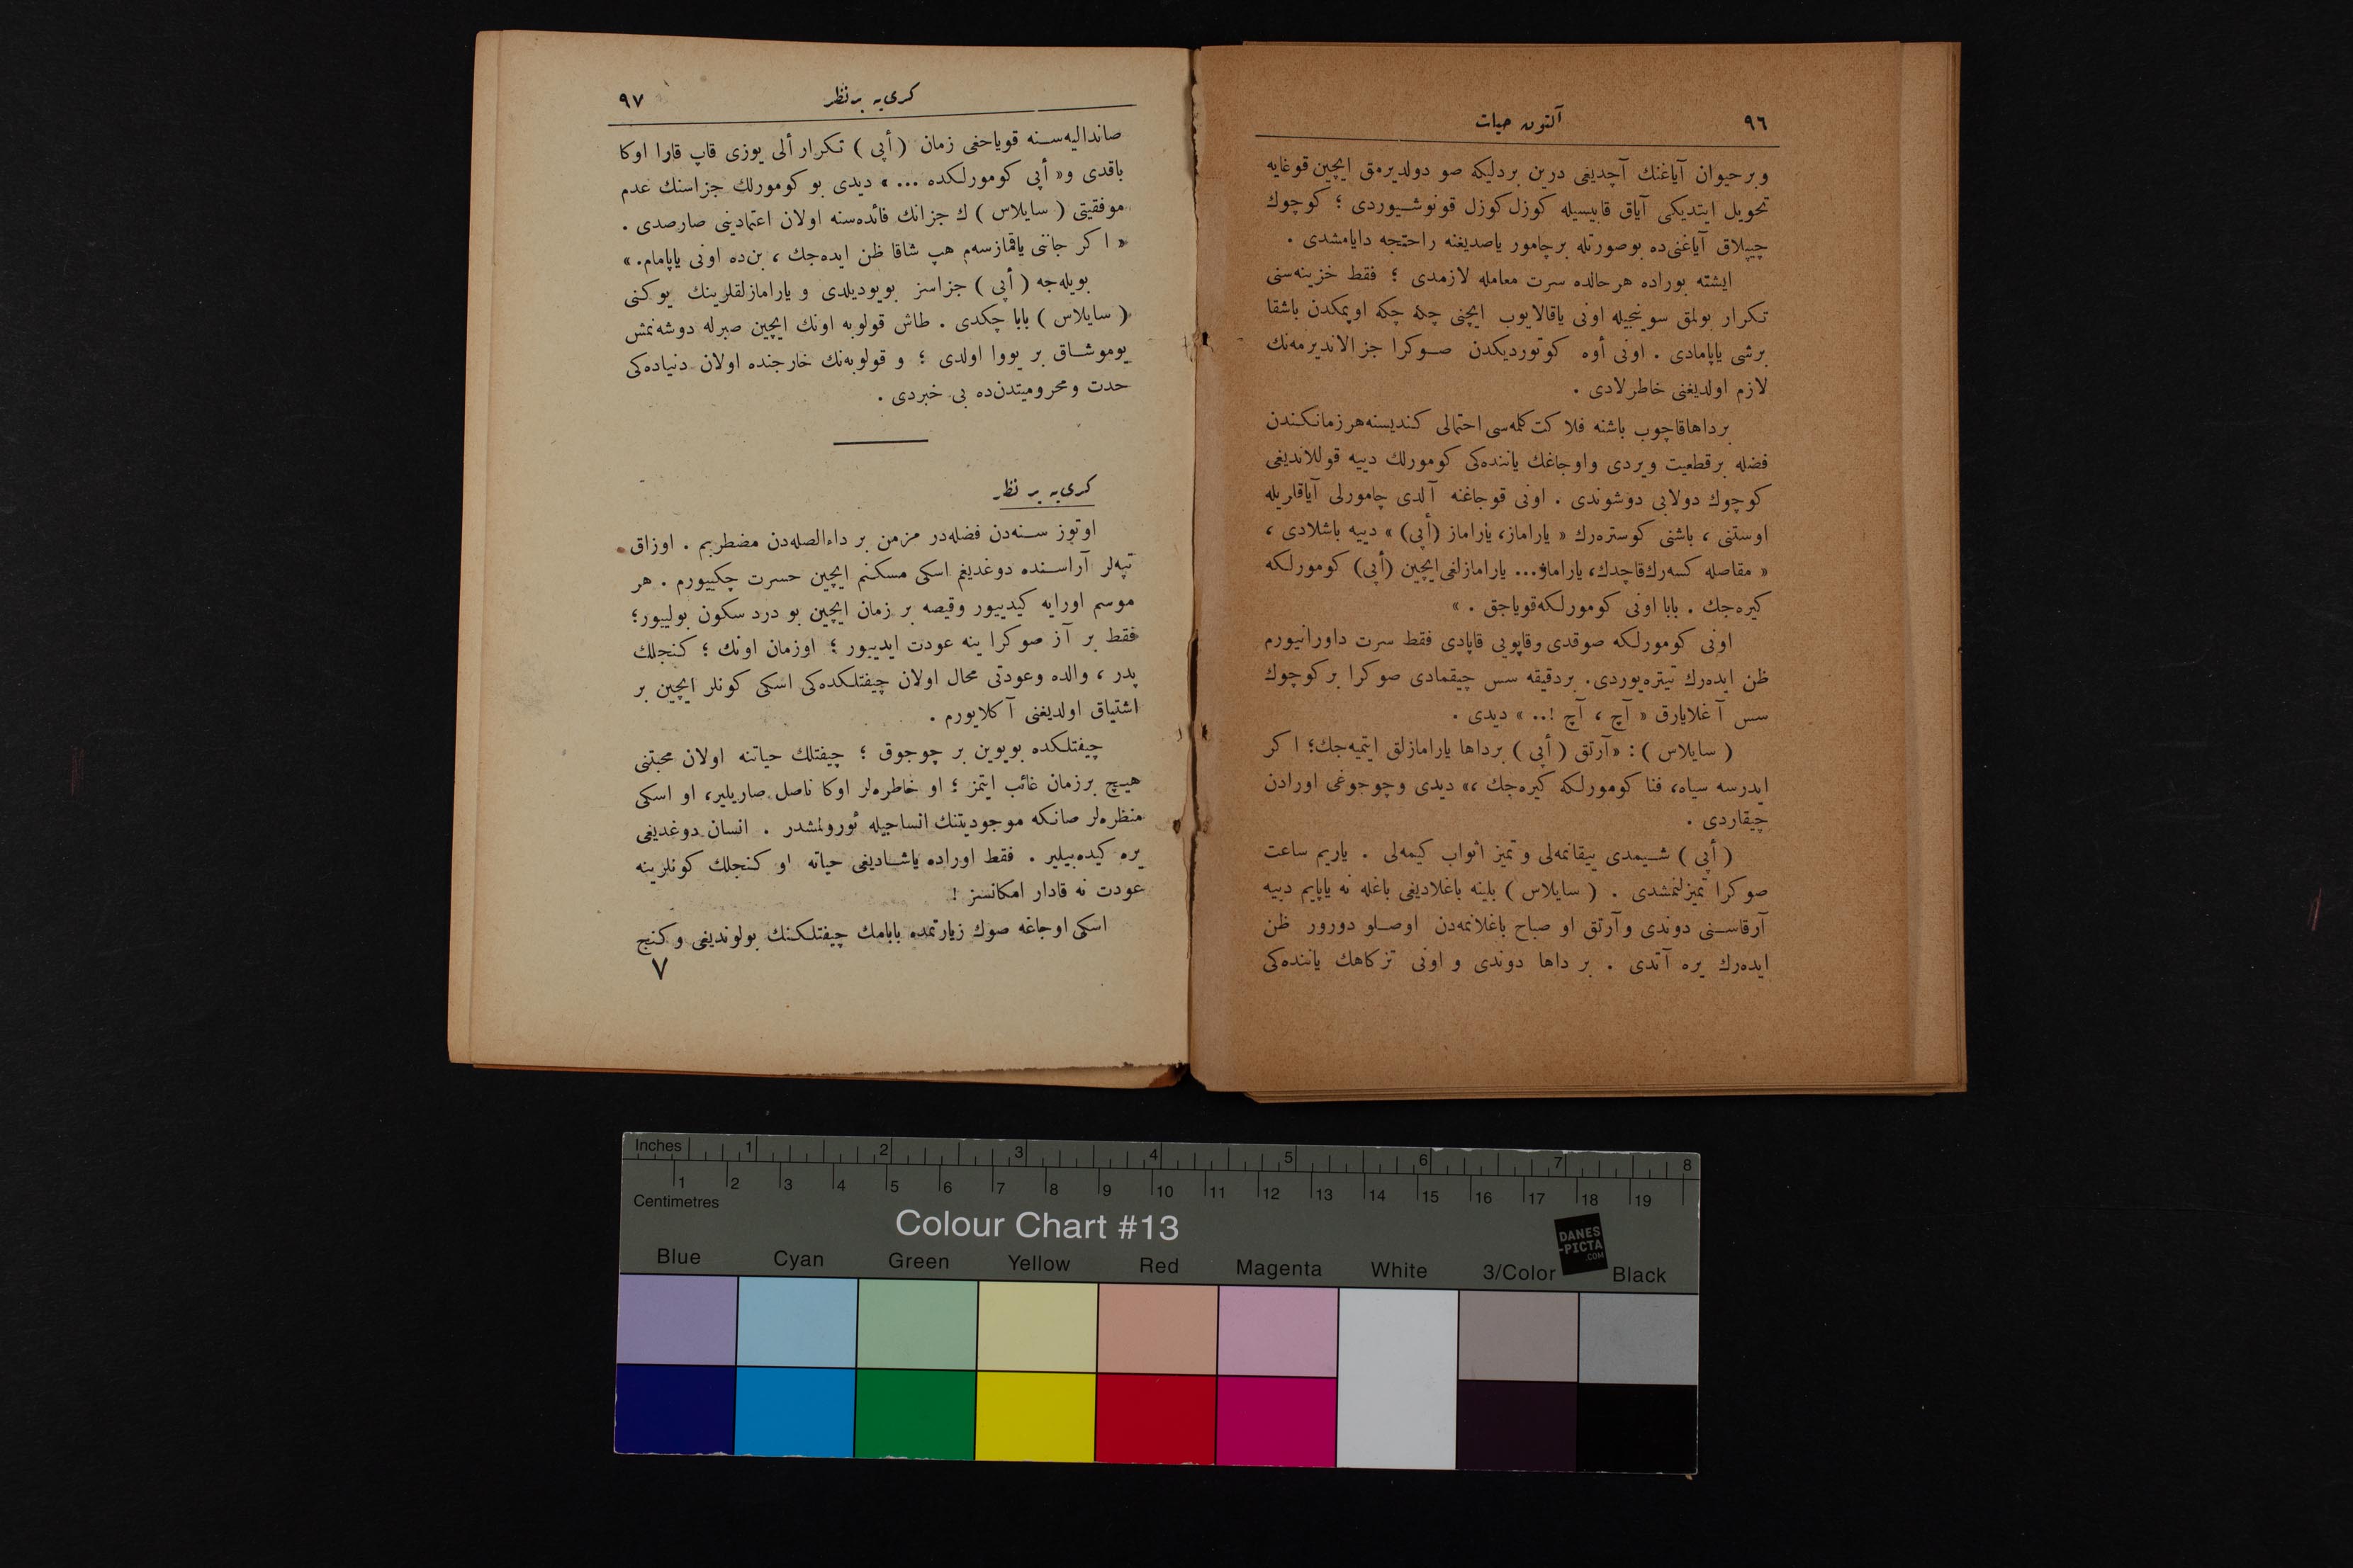 ٩٦
آلتون حيات
وبرحيوان آياغنك آچديغى درين بردليكه صو دولديرمق ايچين قوغايه
تحويل ايتديكى آياق قابيسيله كوزل كوزل قونوشيوردى ؛ كوچوك
چيپلاق آياغنى‌ده بوصورتله برچامور ياصديغنه راحتجه دايامشدى .
ايشته بوراده هرحالده سرت معامله لازمدى ؛ فقط خزينه‌سنى
تكرار بولمق سوينجيله اونى ياقالايوب ايچنى چكه چكه اوپمكدن باشقا
برشى ياپامادى . اونى أوه كوتورديكدن صوكرا جزالانديرمه‌نك
لازم اولديغنى خاطرلادى .
برداهاقاچوب باشنه فلاكت كلمه‌سى احتمالى كنديسنه‌هرزمانكندن
فضله برقطعيت ويردى واوجاغك ياننده‌كى كومورلك دييه قوللانديغى
كوچوك دولابى دوشوندى . اونى قوجاغنه آلدى چامورلى آياقلريله
اوستنى ، باشنى كوستره‌رك « ياراماز، ياراماز (أپى) » دييه باشلادى ،
« مقاصله كسه‌رك‌قاچدك، ياراماز... يارامازلغى‌ايچين (أپى) كومورلكه
كيره‌جك . بابا اونى كومورلكه‌قوياجق . »
اونى كومورلكه صوقدى وقاپويى قاپادى فقط سرت داورانيورم
ظن ايده‌رك تيتره‌يوردى. بردقيقه سس چيقمادى صوكرا بركوچوك
سس آغلايارق « آچ ، آچ !.. » ديدى .
( سايلاس ) : «آرتق ( أپى ) برداها يارامازلق ايتميه‌جك؛ اكر
ايدرسه سياه، فنا كومورلكه كيره‌جك ،» ديدى وچوجوغى اورادن
چيقاردى .
( أپى ) شيمدى ييقانمه‌لى وتميز اثواب كيمه‌لى . ياريم ساعت
صوكرا تميزلنمشدى . ( سايلاس ) بلينه باغلاديغى باغله نه ياپايم دييه
آرقاسنى دوندى وآرتق او صباح باغلانمه‌دن اوصلو دورور ظن
ايده‌رك يره آتدى . بر داها دوندى و اونى تزكاهك ياننده‌كى
٩٧
كرى‌يه بر نظر
صانداليه‌سنه قوياجغى زمان ( أپى ) تكرار ألى يوزى قاپ قارا اوكا
باقدى و« أپى كومورلكده ... » ديدى بو كومورلك جزاسنك عدم
موفقيتى ( سايلاس ) ك جزانك فائده‌سنه اولان اعتمادينى صارصدى .
« اكر جاننى ياقمازسه‌م هپ شاقا ظن ايده‌جك ، بن‌ده اونى ياپامام. »
بويله‌جه ( أپى ) جزاسز بويوديلدى و يارامازلقلرينك يوكنى
( سايلاس ) بابا چكدى . طاش قولوبه اونك ايچين صبرله دوشه‌نمش
يوموشاق بر يووا اولدى ؛ و قولوبه‌نك خارجنده اولان دنياده‌كى
حدت ومحروميتدن‌ده بى خبردى .
كرى‌يه بر نظر
اوتوز سنه‌دن فضله‌در مزمن بر داءالصله‌دن مضطربم . اوزاق
تپه‌لر آراسنده دوغديغم اسكى مسكنم ايچين حسرت چكييورم . هر
موسم اورايه كيدييور وقيصه بر زمان ايچين بو درد سكون بولييور؛
فقط بر آز صوكرا ينه عودت ايدييور ؛ اوزمان اونك ؛ كنجلك
پدر ، والده وعودتى محال اولان چيفتلكده‌كى اسكى كونلر ايچين بر
اشتياق اولديغنى آكلايورم .
چيفتلكده بويوين بر چوجوق ؛ چيفتلك حياتنه اولان محبتنى
هيچ برزمان غائب ايتمز ؛ او خاطره‌لر اوكا ناصل صاريلير، او اسكى
منظره‌لر صانكه موجوديتنك انساجيله ئورولمشدر . انسان دوغديغى
يره كيده‌بيلير . فقط اوراده ياشاديغى حياته او كنجلك كونلرينه
عودت نه قادار امكانسز !
اسكى اوجاغه صوك زيارتمده بابامك چيفتلكنك بولونديغى وكنج
٧
Inches 1 2 3 4 5 6 7 8
1 2 3 4 5 6 7 8 9 10 11 12 13 14 15 16 17 18 19
Centimetres
Colour Chart #13
DANES
-PICTA
.COM
Blue Cyan Green Yellow Red Magenta White 3/Color Black